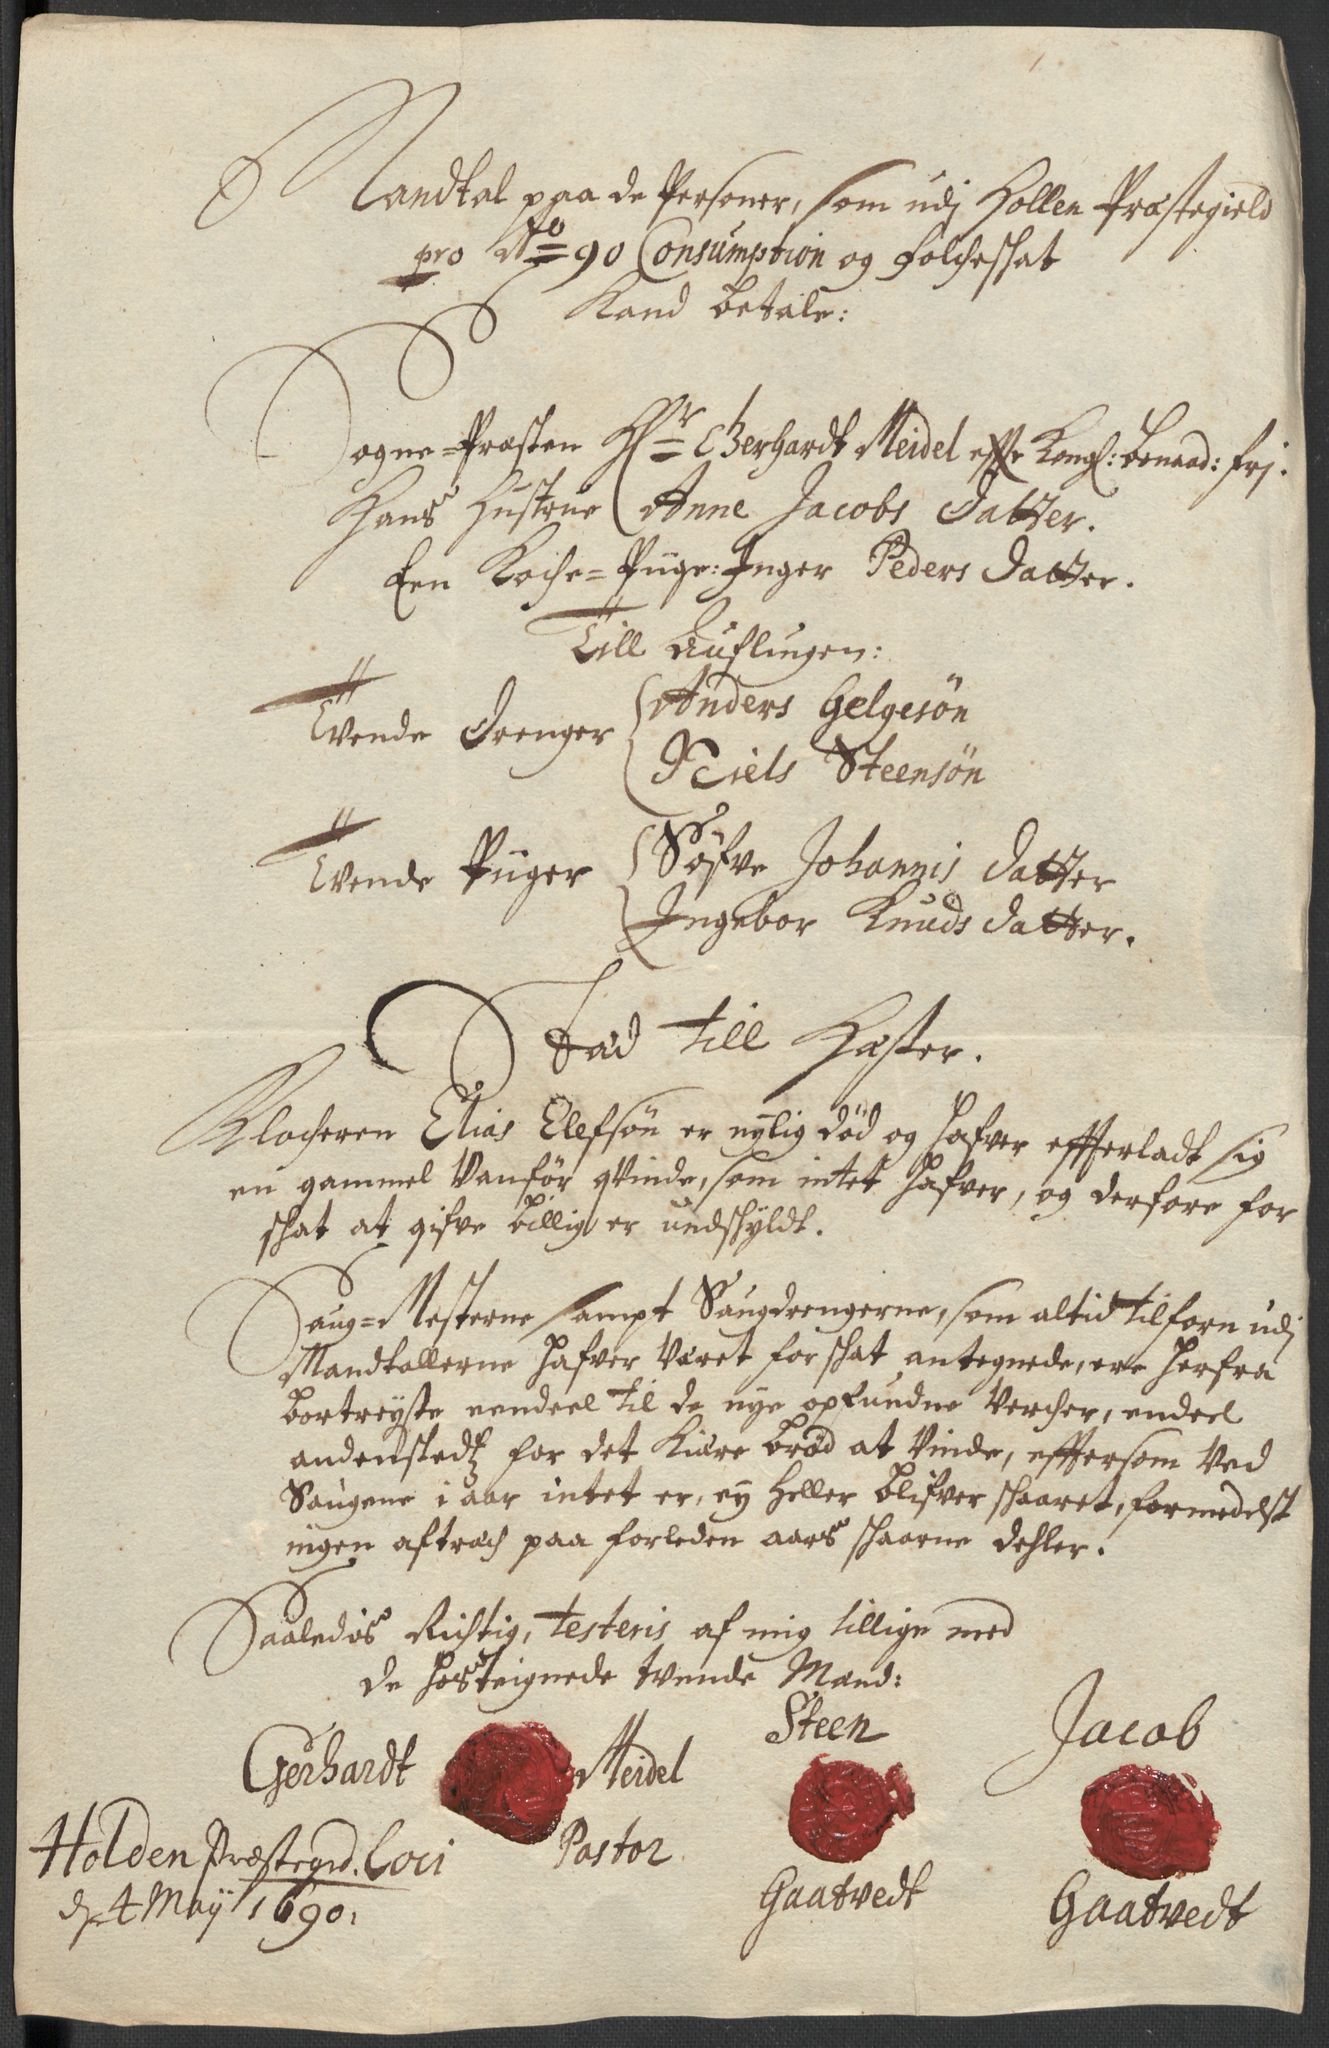 Mandtal paa de Personer, som udj Hollen Præstegield
pro Ao 90 Consumption og Folcheschat
Kand betale:
Sogne-Præsten Hr Gerhardt Meidel effte Kongl: benaad: frj.
Hans Hustrue Anne Jacobs Datter.
Een Koche-Piige: Inger Peders Datter.
Till Auflingen:
Tvende Drenger Anders Helgesøn
Niels Steensøn
Tvende Piiger Søfve Johannis Datter
Ingebor Knuds Datter.
Sæd till Hæster.
Klocheren Elias Elefsøn er nylig død og hafver effterladt sig
en gammel Vanför qvinde, som intet hafver, og derfore for
schat at gifve billig er undschyldt.
Saug-Mesterne sampt Saugdrengerne, som altid tilforn udj
Mandtallerne hafver været for schat antegnede, ere herfra
bortreyste eendeel til de nye opfundne Vercher, endeel
andenstedtz for det kiære brød at vinde, efftersom ved
Saugene i aar intet er, ey heller blifver schaaret, formedelst
ingen aftræch paa forleden aars schaarne dehler.
Saaledis Richtig, testeris af mig tillige med
de hosteignede tvende Mænd:
Gerhardt Meidel Steen Jacob
Holden Præstegrd. Loci Pastor
d. 4 Maÿ 1690. Gaatvedt Gaatvedt